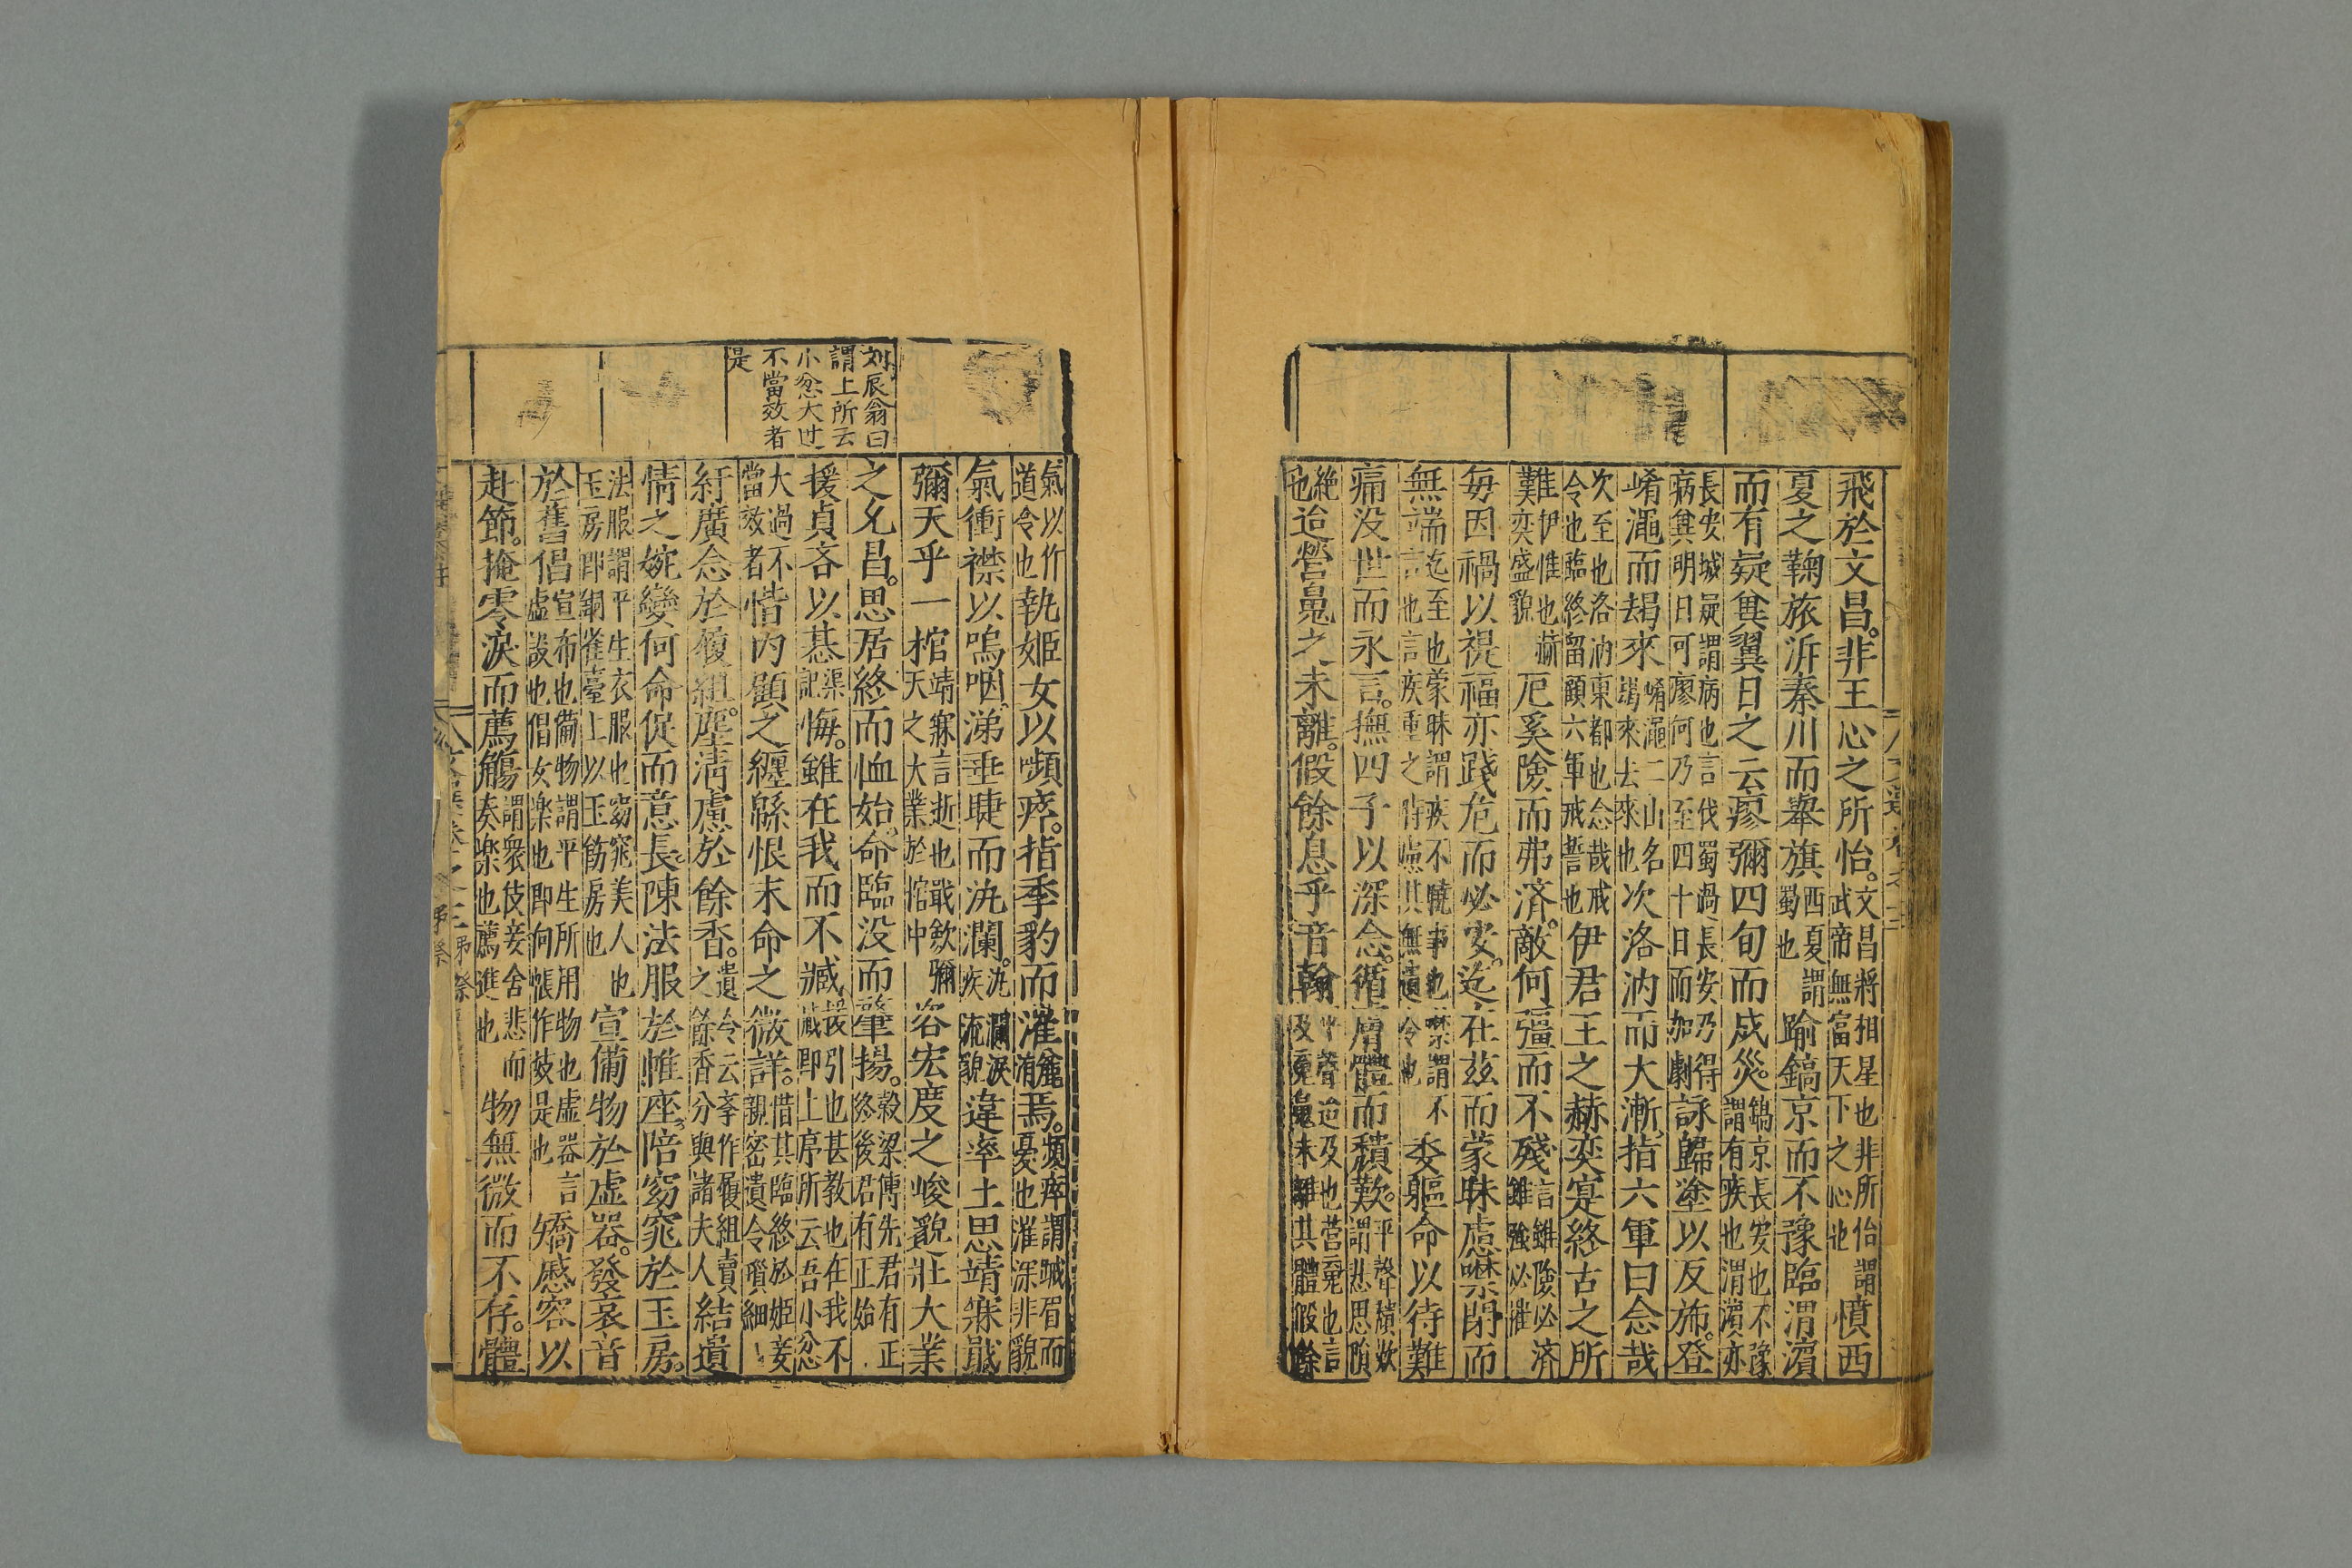 飛於文昌。非王心之所怡。文昌將相星也非所怡謂武帝無富天下之心也憤西
夏之鞠旅泝秦川而舉旗西夏謂蜀也踰鎬京而不豫臨渭濱
而有疑兾翼日之云瘳彌四旬而成災。鎬京長安也不豫謂有疾也渭濱亦
長安城疑謂病也言伐蜀過長安乃得病兾明日可瘳何乃至四十日而加劇詠歸塗以反旆。登
崤澠而朅來崤澠二山名朅來去來也次洛汭而大漸指六軍曰念哉
次至也洛汭東都也念哉戒令也臨終留顧六軍戒誓也伊君王之赫奕寔終古之所
難伊惟也赫奕盛貌厄奚險而弗済。敵何彊而不殘言雖險必済雖強必摧
每因禍以禔福亦踐危而必安。迄在茲而蒙昧慮噤閉而
無端迄至也蒙昧謂疾不曉事也噤謂不言也言疾重之時慮其無遺令也委軀命以待難
痛没世而永言。撫四子以深念。循膚體而穨歎。平聲穨歎謂悲思隕
絶也迨營䰟之未離。假餘息乎音翰聲迨及也營䰟也言及䰟未離其體假餘
刘辰翁曰
謂上所云
小忿大过
不當效者
是
氣以作道令也執姬女以嚬瘁。指季豹而漼焉。嚬瘁謂蹙眉而憂也漼深非貌
氣衝襟以嗚咽涕垂睫而汍瀾。汍瀾淚疾流貌違率土以靖寐戢
彌天乎一棺靖寐言逝也戢斂彌天之大業於棺中咨宏度之峻貌壯大業
之允昌。思居終而恤始。命臨没而肇揚。糓梁傳先君有正終後君有正始
援貞吝以惎渠記悔。雖在我而不臧援引也惎教也在我不臧即上序所云吾小忿
大過不當效者惜内顧之纏緜恨末命之微詳。惜其臨終於姬妾親密遺令瑣細
紆廣念於履組。塵清慮於餘香。遺令云斈作履組賣之餘香分與諸夫人結遺
情之婉孌何命促而意長陳法服於帷座陪窈窕於玉房。
法服謂平生衣服也窈窕美人也玉房即銅雀臺上以玉飾房也宣備物於虚器。發哀音
於舊倡宣布也備物謂平生所用物也虚器言虚設也倡女楽也即向帳作妓是也矯慼容以
赴節。掩零淚而薦觴謂衆伎妾舍悲而奏楽也薦進也物無微而不存。體